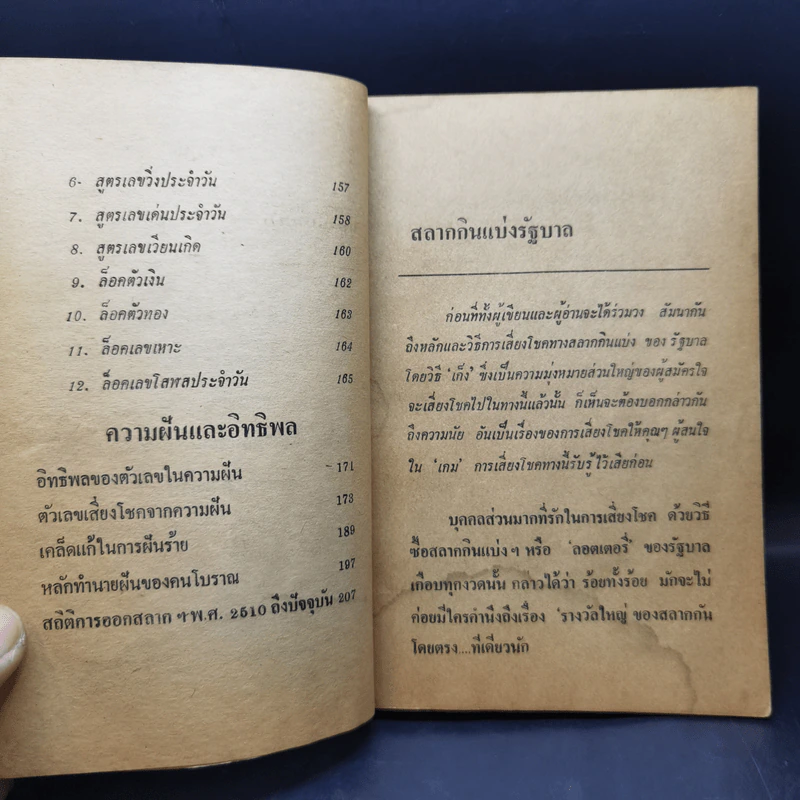 6- สูตรเลขวิ่งประจำวัน 157
7. สูตรเลขเด่นประจำวัน 158
8. สูตรเลขเวียนเกิด 160
9. ล็อคตัวเงิน 162
10. ล็อคตัวทอง 163
11. ล็อคเลขเหาะ 164
12. ล็อคเลขโสฬสประจำวัน 165
ความฝันและอิทธิพล
อิทธิพลของตัวเลขในความฝัน 171
ตัวเลขเสี่ยงโชคจากความฝัน 173
เคล็ดแก้ในการฝันร้าย 189
หลักทำนายฝันของคนโบราณ 197
สถิติการออกสลาก ฯ พ.ศ. 2510 ถึงปัจจุบัน 207
สลากกินแบ่งรัฐบาล
ก่อนที่ทั้งผู้เขียนและผู้อ่านจะได้ร่วมวง สัมนากัน
ถึงหลักและวิธีการเสี่ยงโชคทางสลากกินแบ่ง ของ รัฐบาล
โดยวิธี 'เก็ง' ซึ่งเป็นความมุ่งหมายส่วนใหญ่ของผู้สมัครใจ
จะเสี่ยงโชคไปในทางนี้แล้วนั้น ก็เห็นจะต้องบอกกล่าวกัน
ถึงความนัย อันเป็นเรื่องของการเสี่ยงโชคให้คุณๆ ผู้สนใจ
ใน 'เกม' การเสี่ยงโชคทางนี้รับรู้ไว้เสียก่อน
บุคคลส่วนมากที่รักในการเสี่ยงโชค ด้วยวิธี
ซื้อสลากกินแบ่งฯ หรือ 'ลอตเตอรี่' ของรัฐบาล
เกือบทุกงวดนั้น กลาวได้ว่า ร้อยทั้งร้อย มักจะไม่
ค่อยมีใครคำนึงถึงเรื่อง 'รางวัลใหญ่ ของสลากกัน
โดยตรง....ทีเดียวนัก